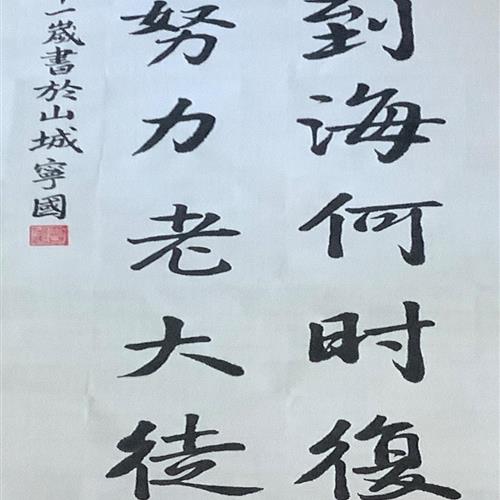 到海何时復
努力老大徒
十一歲書於山城寧國